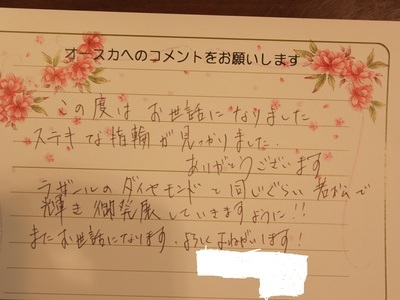 オースカへのコメントをお願いします
この度は お世話になりました
ステキな指輪が見つかりました.
ありがとうございます
ラザールのダイヤモンドと同じぐらい
輝き御発展していきますように!!
またお世話になります.よろしくおねがいします!